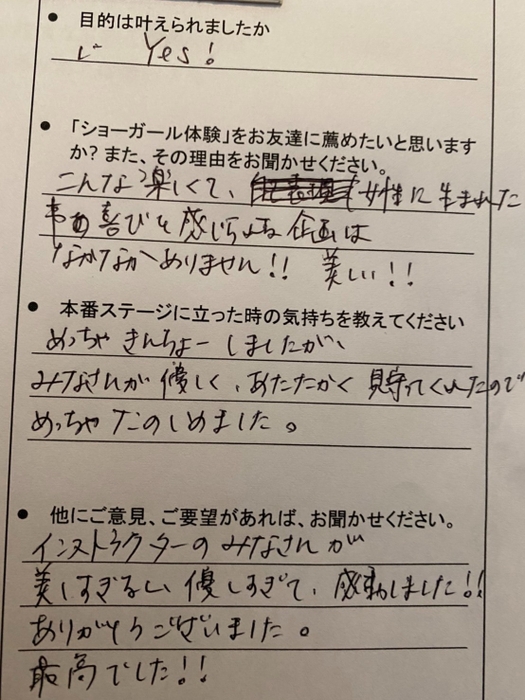 ● 目的は叶えられましたか
Yes!
● 「ショーガール体験」をお友達に薦めたいと思います
か？また、その理由をお聞かせください。
こんな楽しくて、女性に生まれた
事の喜びを感じられる企画は
なかなかありません!! 美しい!!
● 本番ステージに立った時の気持ちを教えてください
めっちゃきんちょーしましたが、
みなさんが優しく、あたたかく見守ってくれたので
めっちゃたのしめました。
● 他にご意見、ご要望があれば、お聞かせください。
インストラクターのみなさんが
美しすぎるし優しすぎて、感動しました!!
ありがとうございました。
最高でした!!